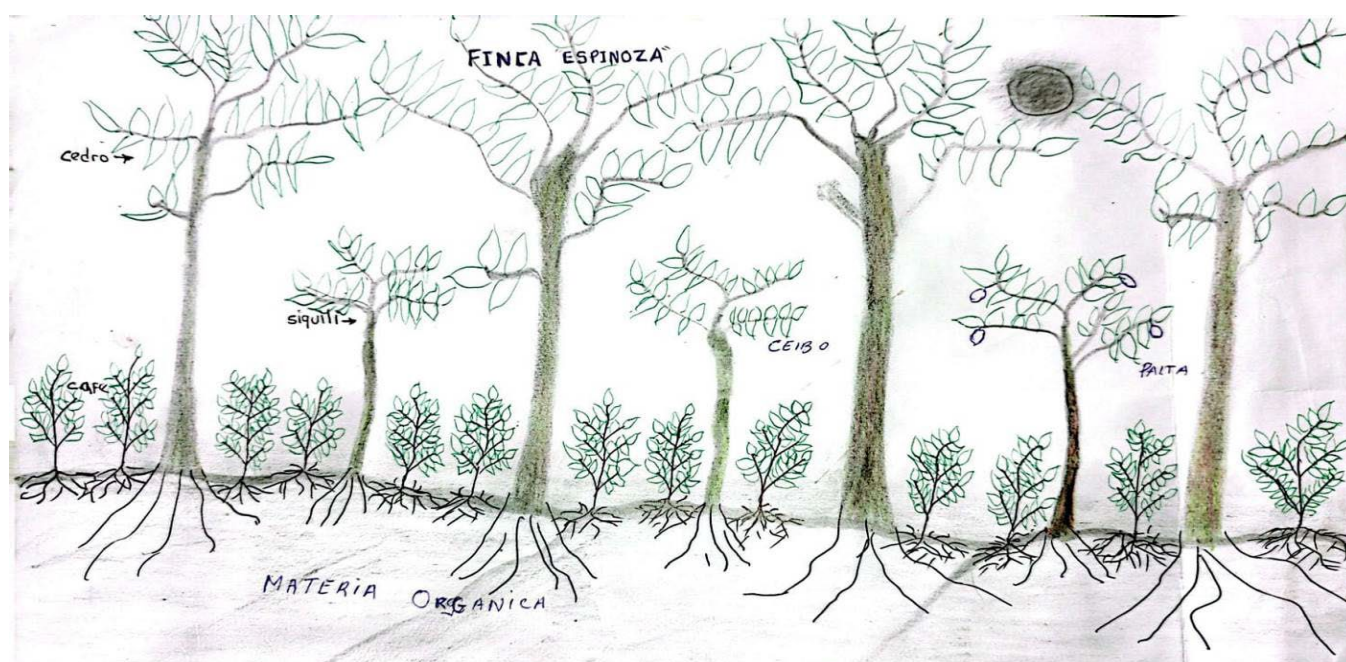 FINCA ESPINOZA"
cedro →
siquili →
CEIBO
PALTA
cafe
MATERIA ORGANICA